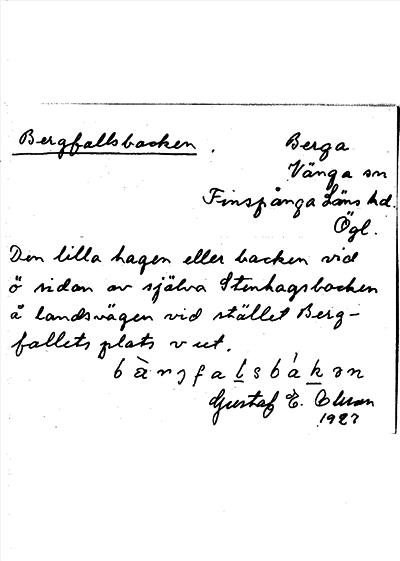 Bergfallsbacken.
Berga
Vånga sn
Finspånga Läns hd.
Ögl.
Den lilla hagen eller backen vid
ö sidan av själva Stenhagsbacken
å landsvägen vid stället Berg-
fallets plats v ut.
bæ̀rjfalsbákən
Gustaf E.
1927